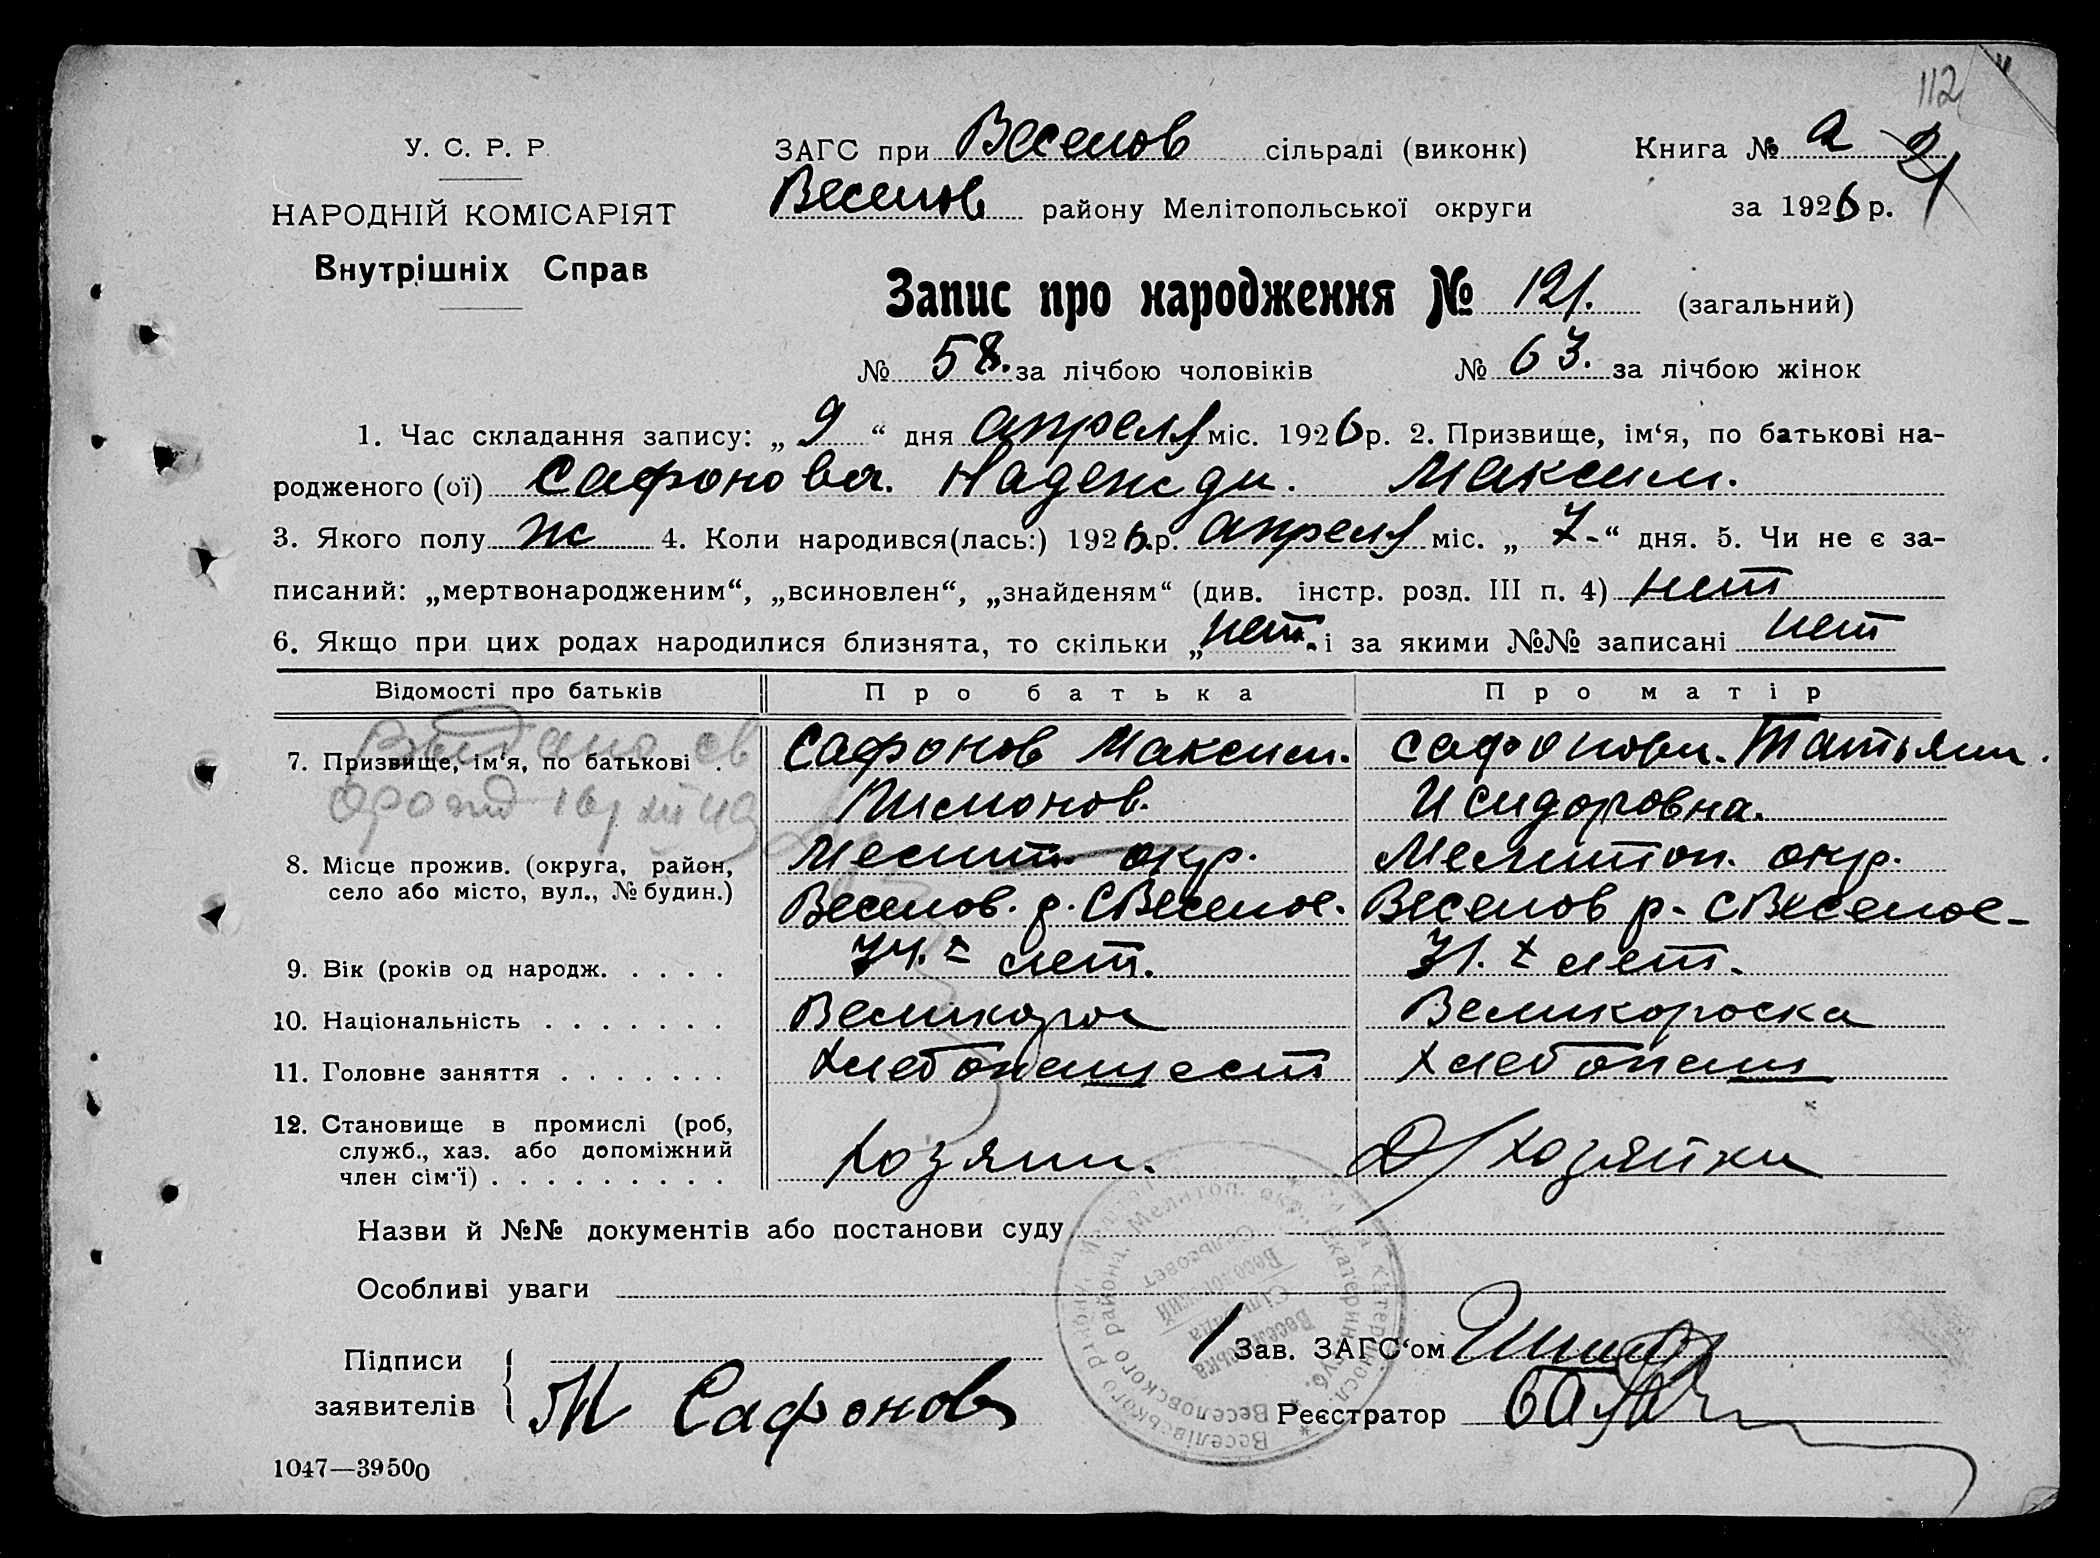 112
У. С. Р. Р.
НАРОДНІЙ КОМІСАРІЯТ
Внутрішніх Справ
ЗАГС при Веселов сільраді (виконк) Книга № 2
Веселов району Мелітопольської округи за 1926 р.
Запис про народження № 121. (загальний)
№ 58. за лічбою чоловіків № 63. за лічбою жінок
1. Час складання запису: „ 9 “ дня апреля міс. 1926 р. 2. Призвище, ім‘я, по батькові на-
родженого (ої) Сафонова. Надежди. Максим.
3. Якого полу ж 4. Коли народився(лась:) 1926 р. апреля міс. „ 7 - “ дня. 5. Чи не є за-
писаний: „мертвонародженим“, „всиновлен“, „знайденям“ (див. інстр. розд. III п. 4) нет
6. Якщо при цих родах народилися близнята, то скільки „ нет. і за якими №№ записані нет
Відомості про батьків Про батька Про матір
7. Призвище, ім‘я, по батькові . Сафонов Максим. Сафонова. Татьяна.
Исидоровна.
8. Місце прожив. (округа, район, Мелит. окр. Мелитоп. окр.
село або місто, вул., № будин.) Веселов. р. С Веселое. Веселов р. С Веселое
9. Вік (років од народж. . . . . лет. лет.
10. Національність . . . . . . . Великорос Великороска
11. Головне заняття . . . . . . . Хлебопашест Хлебопаш
12. Становище в промислі (роб,
служб., хаз. або допоміжний
член сім‘ї) . . . . . . . . . Хозяин. Д/Хозяйка
Назви й №№ документів або постанови суду
Особливі уваги
Підписи
заявителів М Сафонов
Зав. ЗАГС‘ом
Реєстратор
1047—39500